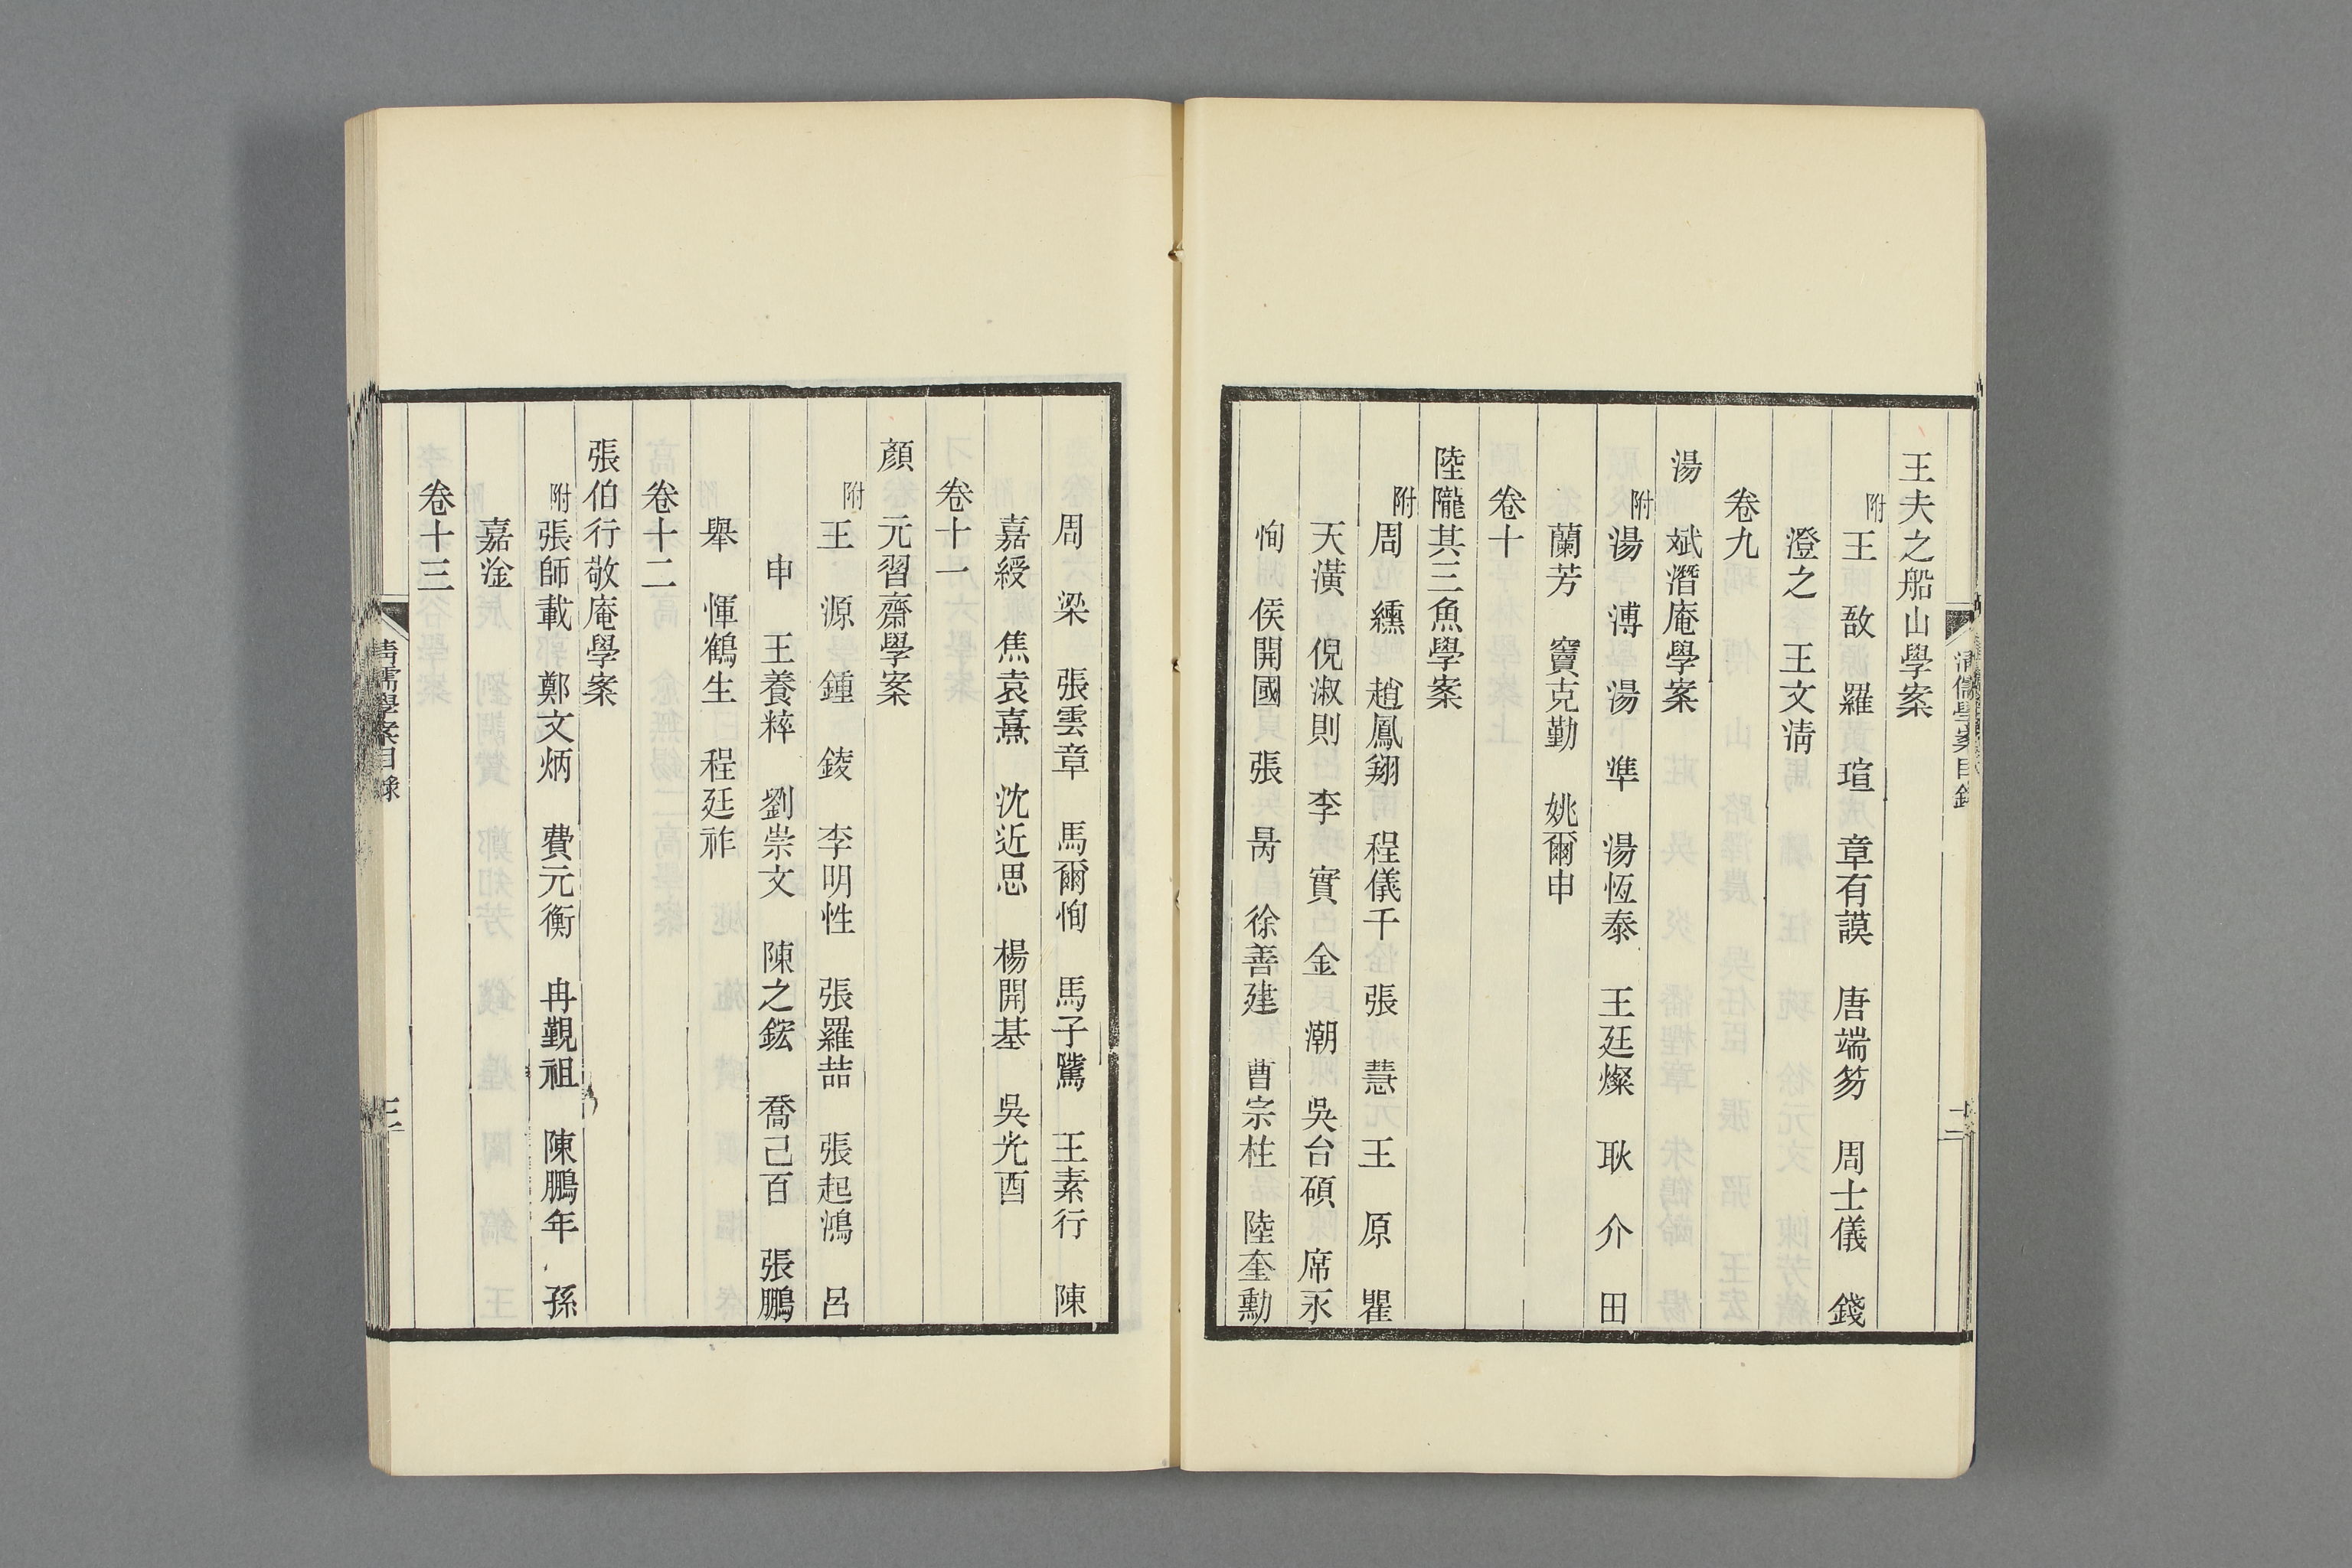 王夫之船山學案
附王 敔 羅 瑄 章有謨 唐端笏 周士儀 錢
澄之 王文淸
卷九
湯 斌潛庵學案
附湯 溥 湯 準 湯恆泰 王廷燦 耿 介 田
蘭芳 竇克勤 姚爾申
卷十
陸隴其三魚學案
附周 纁 趙鳳翔 程儀千 張 慧 王 原 瞿
天潢 倪淑則 李 實 金 潮 吳台碩 席永
恂 侯開國 張 昺 徐善建 曹宗柱 陸奎勳
周 梁 張雲章 馬爾恂 馬子騭 王素行 陳
嘉綬 焦袁熹 沈近思 楊開基 吳光酉
卷十一
顏 元習齋學案
附王 源 鍾 錂 李明性 張羅喆 張起鴻 呂
申 王養粹 劉崇文 陳之鋐 喬己百 張鵬
舉 惲鶴生 程廷祚
卷十二
張伯行敬庵學案
附張師載 鄭文炳 費元衡 冉覲祖 陳鵬年 孫
嘉淦
卷十三
清儒學案目錄